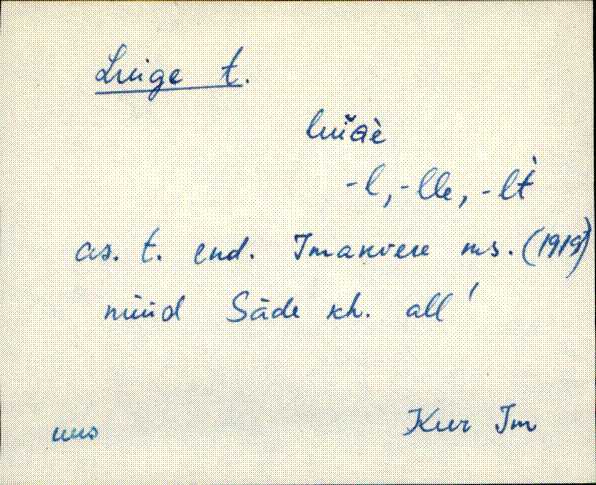 Luige t.
luiɢè
-l, -lle, -lt
as. t. end. Imakvere ms. (1919)
nüüd Säde kh. all
uus Kur Im